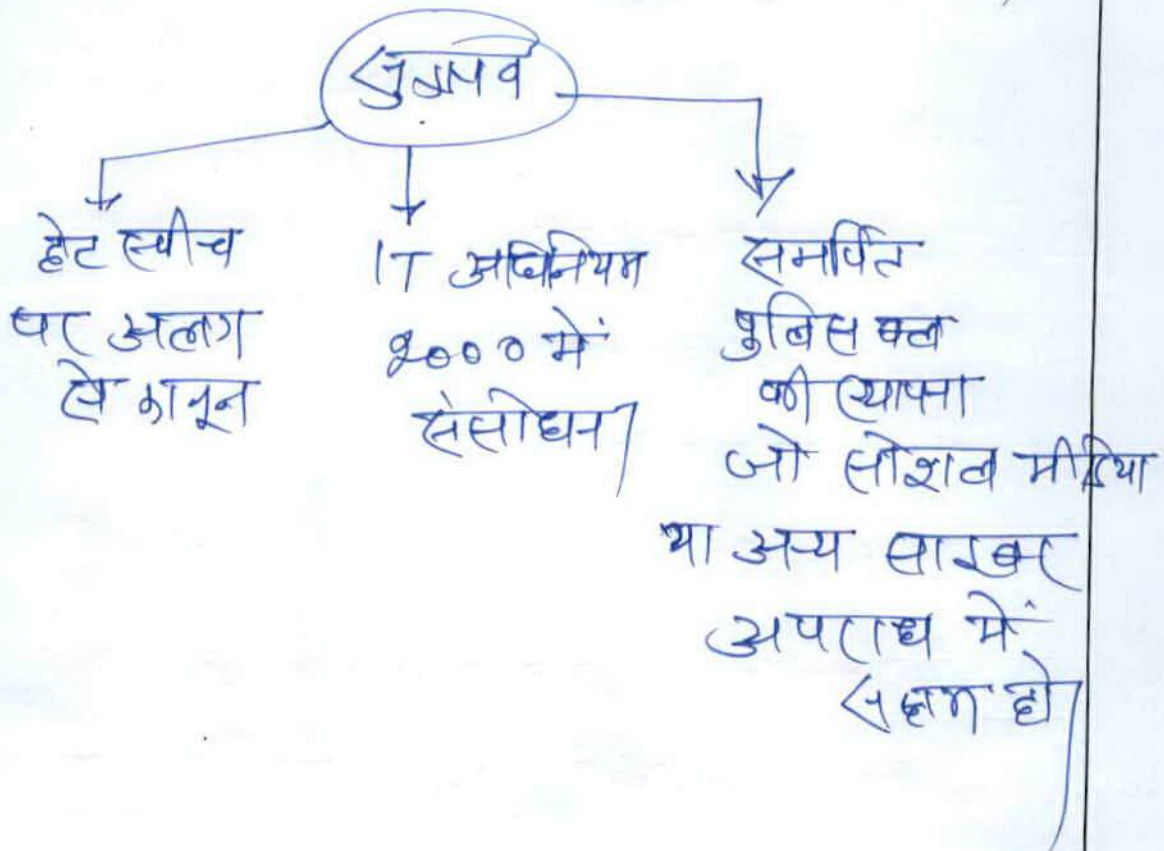 सुझाव
हेट स्पीच
पर अलग
से कानून
IT अधिनियम
2000 में
संसोधन
समर्पित
पुलिस बल
की स्थापना
जो सोशल मीडिया
या अन्य साइबर
अपराध में
सक्षम हो